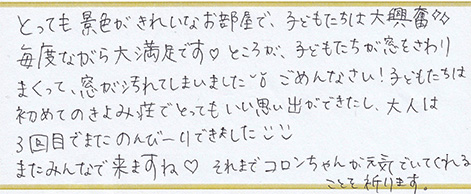 とっても景色がきれいなお部屋で、子どもたちは大興奮♢♢
毎度ながら大満足です♡ ところが、子どもたちが窓をさわり
まくって、窓が汚れてしまいました ごめんなさい！子どもたちは
初めてのきよみ荘でとってもいい思い出ができたし、大人は
3回目でまたのんび〜りできました
またみんなで来ますね♡ それまでコロンちゃんが元気でいてくれる
ことを祈ります。